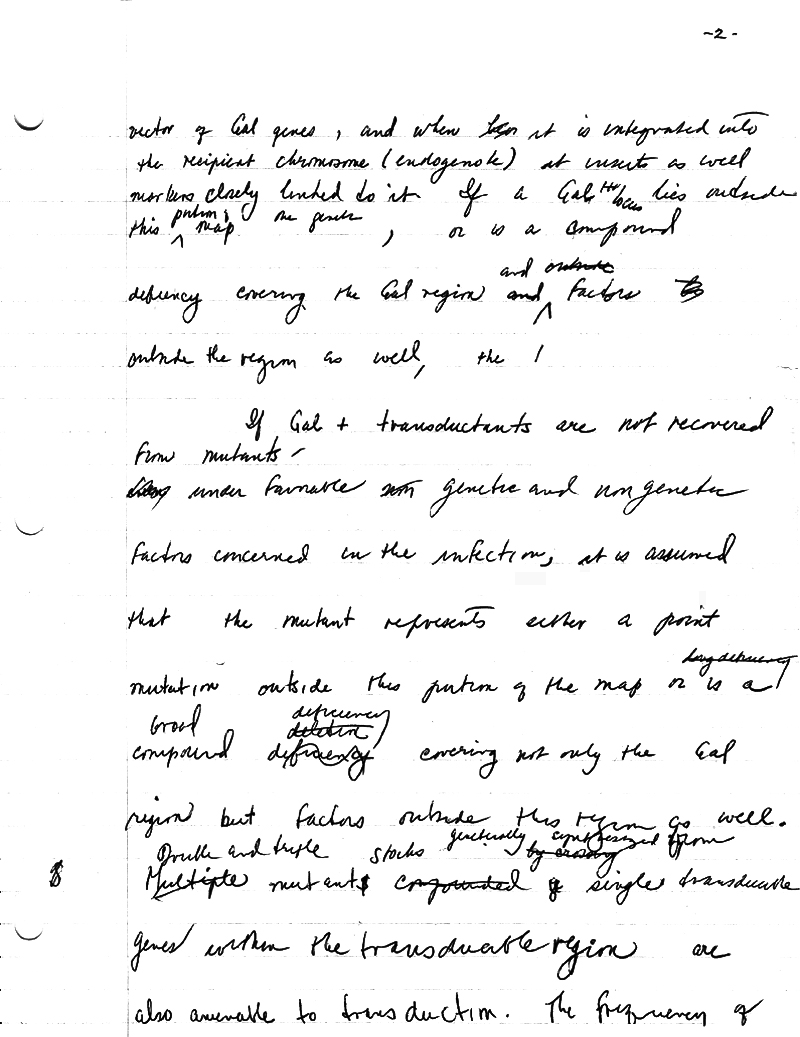 -2-
vector of Gal genes, and when it is integrated into
the recipient chromosome (endogenote) it inserts as well
markers closely linked to it If a Gal locus lies outside
this portion, map one genetic, or is a compound
and outside
deficiency covering the Gal region and factors to
outside the region as well, the
If Gal + transductants are not recovered
from mutants
under favorable genetic and non genetic
factors concerned in the infection, it is assumed
that the mutant represents either a point
long deficiency
mutation outside this portion of the map or is a
broad deficiency
deletion
compound deficiency covering not only the Gal
region but factors outside this region as well.
Double and triple stocks genetically synthesized from
by crossing
Multiple mutants compounded of single transducable
genes within the transducable region are
also amenable to transduction. The frequency of